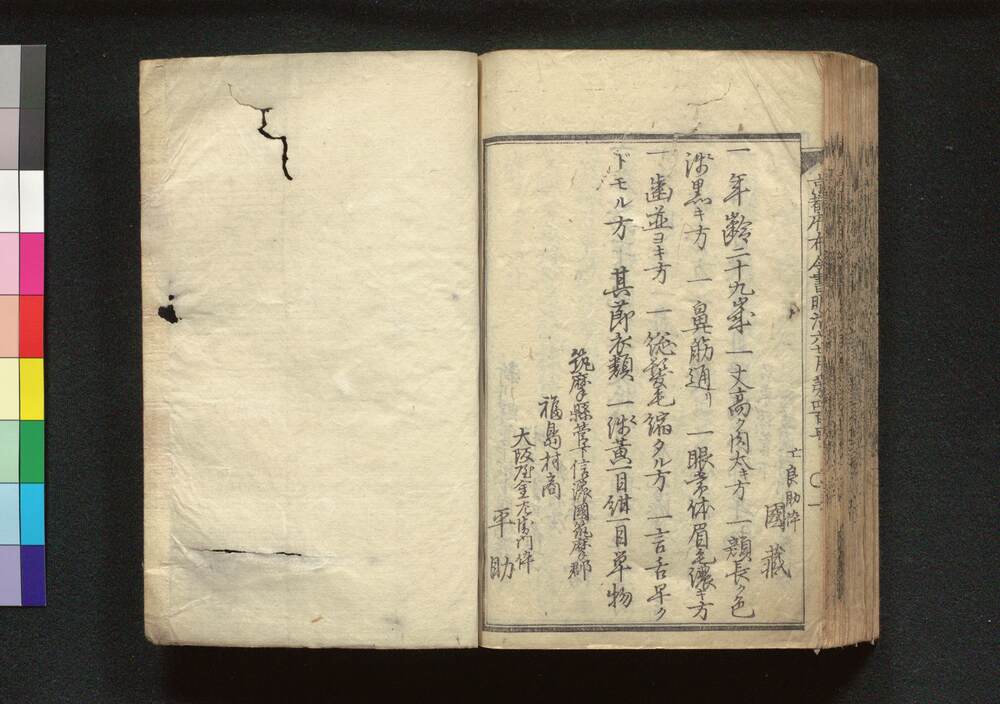 亡良助倅
國藏
一年齢二十九歳 一丈高ク肉太キ方 一顔長ク色
浅黒キ方 一鼻筋通リ 一眼常体眉毛濃キ方
一歯並ヨキ方 一総髪毛縮タル方 一言舌早ク
ドモル方 其節衣類 一浅黄一目紺一目単物
筑摩縣管下信濃國筑摩郡
福島村商
大阪屋金左衛門倅
平助